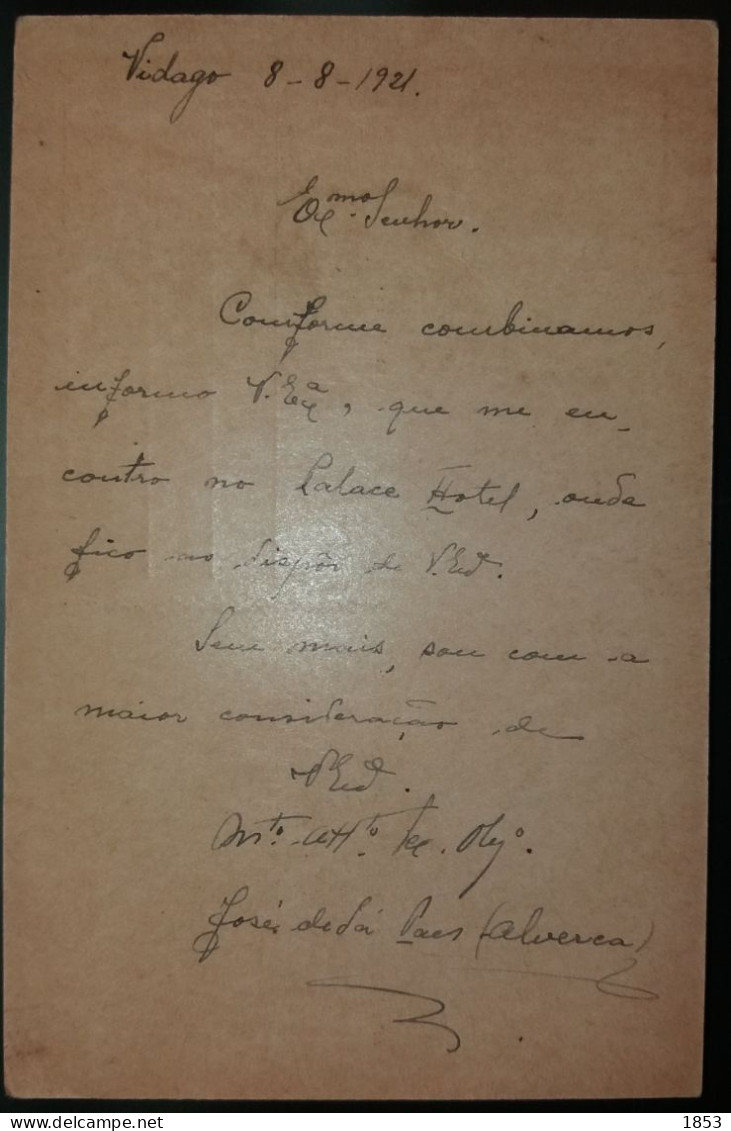 Vidago 8-8-1921.
Exmo. Senhor.
Comforme combinamos,
informo V. Exa, que me en-
contro no Palace Hotel, onde
fico ao dispôr de V. Exa.
Sem mais, sou com a
maior consideração de
V Exa.
Mto. Atto. Ve. Obgo.
José de Sá Paes (Alverca)
1853